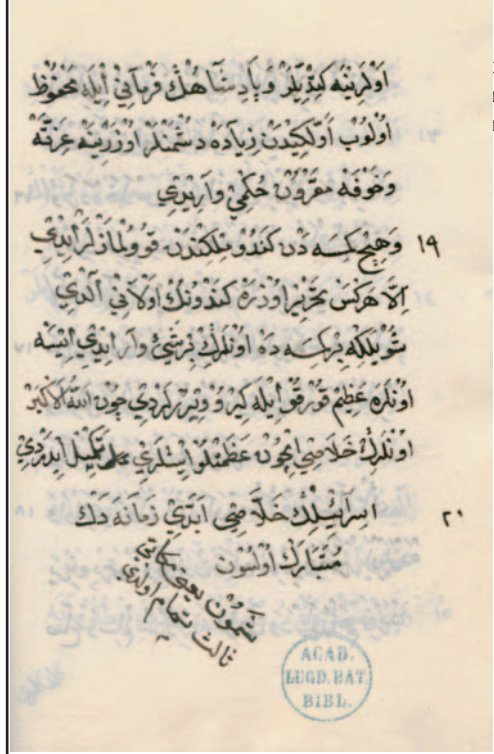 اَوْلَرِينَه كِتدِيلَرْ وُپَادِشَاهُكْ فَرمَانِيْ اِيلَه مَحْفُوظ
اُولُوبْ اَوَّلكِيدَنْ زِيَادَه دشْمَنْلَرْ اوزرِينَه عِزَّتَه
وَخَوْفَه مَقْرُونْ حُكْمِيْ وَارِيدِي
١٩ وَهِيچْ كِسَه دَنْ كَندُو مِلكِندَنْ قَوولمَازْلَرْ ايدِي
اِلَّا هَركَسْ تَحْرِيرْ اوزرَه كَندُونِكْ اولَانِي آلدِي
شُويْلَكِه بِركِسَه دَه اونلرِكْ بِرشَيئْ وَارْ ايدِي اِيسَه
اونلَرَه عَظِيمْ قورقو اِيلَه كِيرُو وِيرِرلَردِي چونْ اللّٰه الاكبر
اونلَرِكْ خَلَاصِي اِيچُونْ عَظَمَتلُو اِيشلَرِي تَكْمِيلْ ايدَردِي
٢٠ اسرآئِيلِكْ خَلَاصِي ابَدِيْ زمَانَه دَكْ
مُتَبَارَكْ اولسُون
شمعون يعني مكابي
ثالث تمام اولدي
ACAD.
LUGD. BAT.
BIBL.